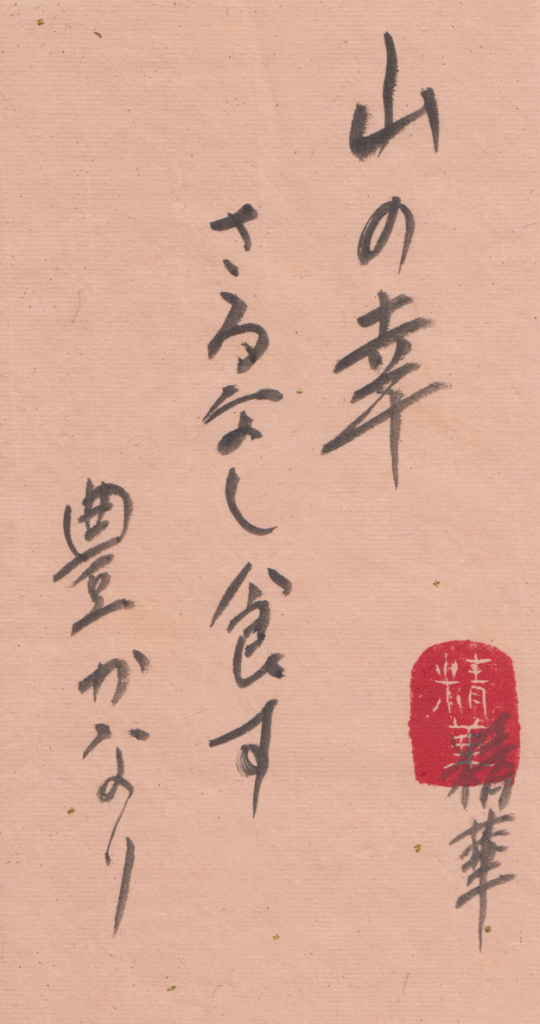 山の幸
さるなし食す
豊かなり
精華
精華